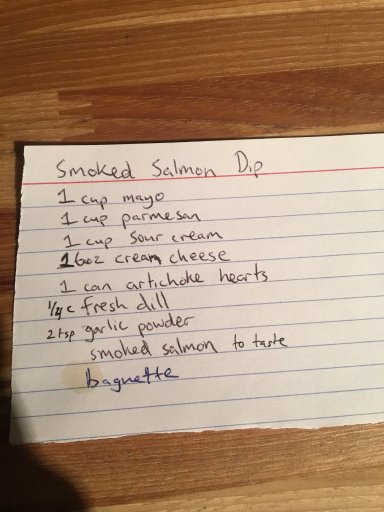 Smoked Salmon Dip
1 cup mayo
1 cup parmesan
1 cup sour cream
16oz cream cheese
1 can artichoke hearts
1/4 c fresh dill
2 tsp garlic powder
smoked salmon to taste
baguette